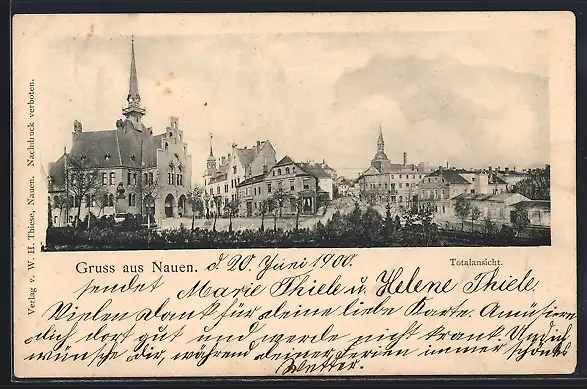 Verlag v. W. H. Thiese, Nauen. Nachdruck verboten.
Gruss aus Nauen. d 20. Juni 1900.
Totalansicht.
sendet Marie Thiele u. Helene Thiele.
Vielen Dank für deine liebe Karte. Amüsiere
dich dort gut und werde nicht krank. Und ich
wünsche dir, während deiner Ferien immer schönes
Wetter.